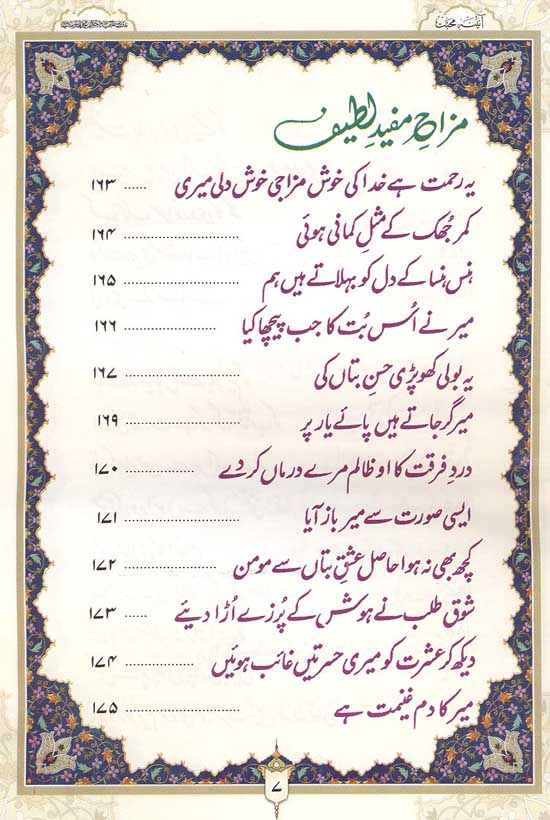 آئینۂ محبت
مزاحِ مفید لطیف
یہ رحمت ہے خدا کی خوش مزاجی خوش دلی میری ...... ۱۶۳
کمر جُھک کے مثلِ کمانی ہوئی ...... ۱۶۴
ہنس ہنسا کے دل کو بہلاتے ہیں ہم ...... ۱۶۵
میر نے اُس بُت کا جب پیچھا کیا ...... ۱۶۶
یہ بولی کھوپڑی حسنِ بتاں کی ...... ۱۶۷
میر گر جاتے ہیں پائے یار پر ...... ۱۶۹
دردِ فرقت کا او ظالم مرے درماں کر دے ...... ۱۷۰
ایسی صورت سے میر باز آیا ...... ۱۷۱
کچھ بھی نہ ہوا حاصل عشقِ بتاں سے مومن ...... ۱۷۲
شوقِ طلب نے ہوش کے پُرزے اُڑا دیئے ...... ۱۷۳
دیکھ کر عشرت کو میری حسرتیں غائب ہوئیں ...... ۱۷۴
میر کا دم غنیمت ہے ...... ۱۷۵
۷